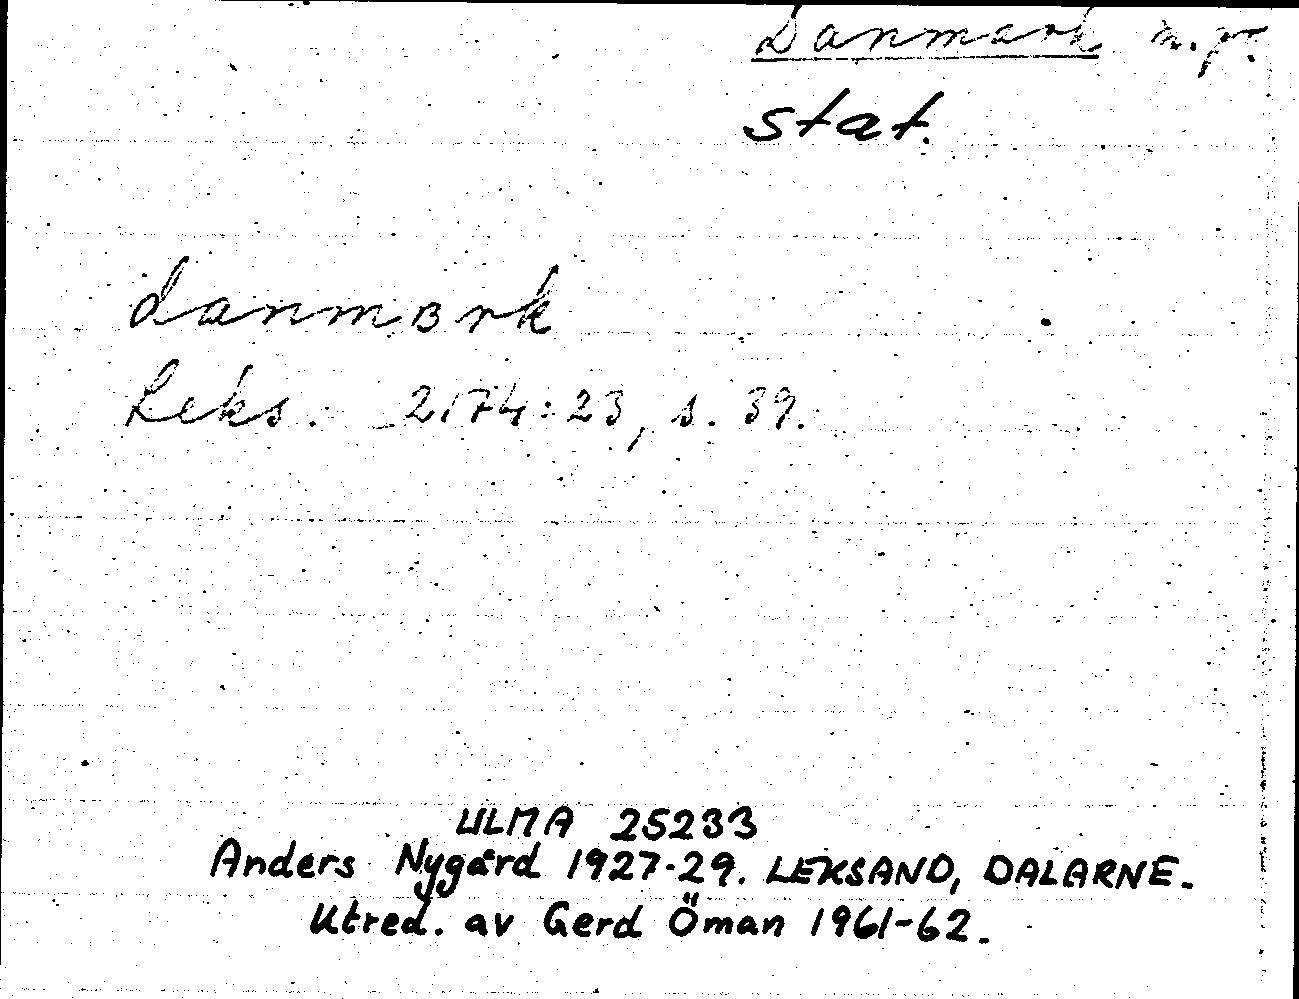 Danmark n. pr.
stat.
danmʙrk
Leks. 2174:23, s. 39.
ULMA 25233
Anders Nygård 1927-29. LEKSAND, DALARNE.
Utred. av Gerd Öman 1961-62.